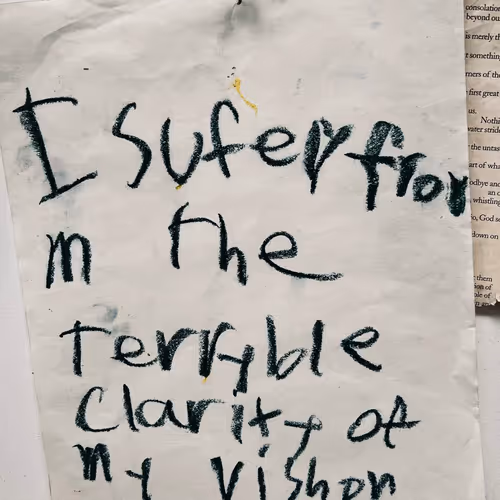 I sufer fro
m the
terryble
clarity of
my vishon
consolation
beyond ou
is merely th
t something
rners of the
first great
us.
Nothi
water stride
the untas
art of wha
odbye and
whistling
God se
down on
them